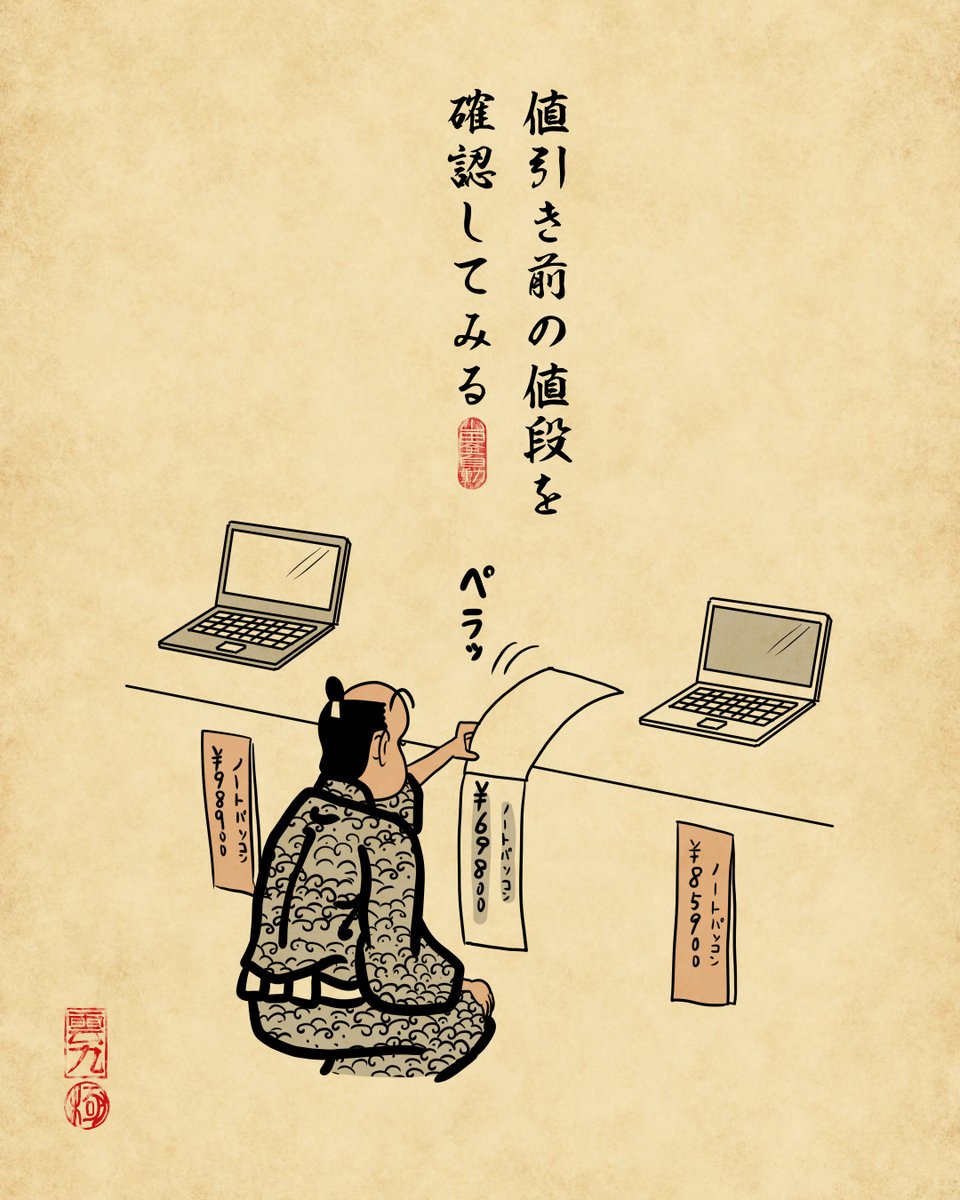 値引き前の値段を
確認してみる
ペラッ
ノートパソコン
¥98900
ノートパソコン
¥69800
ノートパソコン
¥85900